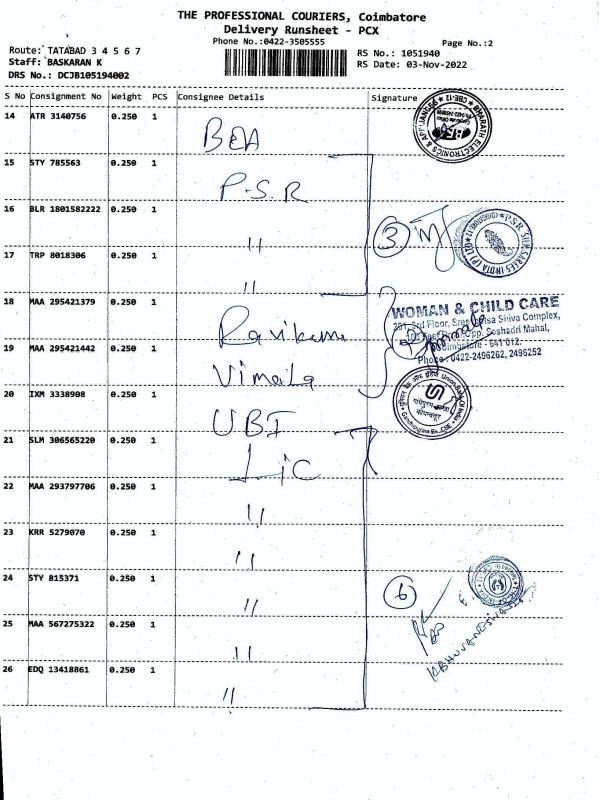 THE PROFESSIONAL COURIERS, Coimbatore
Delivery Runsheet - PCX
Phone No.:0422-3505555
Page No.:2
Route: TATABAD 3 4 5 6 7
RS No.: 1051940
Staff: BASKARAN K
RS Date: 03-Nov-2022
DRS No.: DCJB105194002
S No Consignment No Weight PCS Consignee Details Signature
14 ATR 3140756 0.250 1 BEA
BHARATH ELECTRONICS & APPLIANCES CBE-12
15 STY 785563 0.250 1 P.S.R
16 BLR 1801582222 0.250 1 "
3
P.S.R. SILK SAREES INDIA (P) LTD
17 TRP 8018306 0.250 1 "
18 MAA 295421379 0.250 1 Ravikuma
WOMAN & CHILD CARE
3rd Floor, Shiva Complex,
Opp. Seshadri Mahal,
Coimbatore - 641 012.
Phone: 0422-2496262, 2495252
19 MAA 295421442 0.250 1 Vimala
20 IXM 3338908 0.250 1 UBI
Union Bank Of India
21 SLM 306565220 0.250 1 LIC
22 MAA 293797706 0.250 1 "
23 KRR 5279070 0.250 1 "
24 STY 815371 0.250 1 "
6
25 MAA 567275322 0.250 1 "
26 EDQ 13418861 0.250 1 "